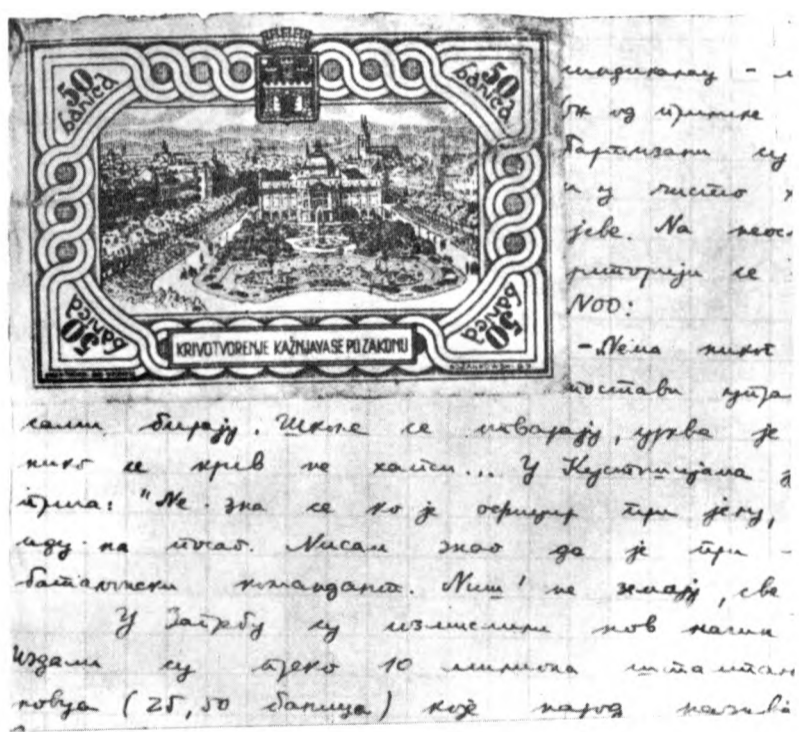 50 banica
50 banica
50 banica
50 banica
KRIVOTVORENJE KAŽNJAVA SE PO ZAKONU
од прилике
партизани су
и у чисто
јеве. На неос
риторији се
NOO:
- Нема
постави упра
сами бирају. Школе се отварају, црква је
нико се крив не хапси... У Кустошијама
прича: "Не зна се ко је официр при јелу,
иду на посао. Нисам знао да је при -
батаљонски командант. Ниш' не имају, све
У Загребу су измислили нов начин
Издали су преко 10 милиона
новца (25, 50 баница) које народ назива